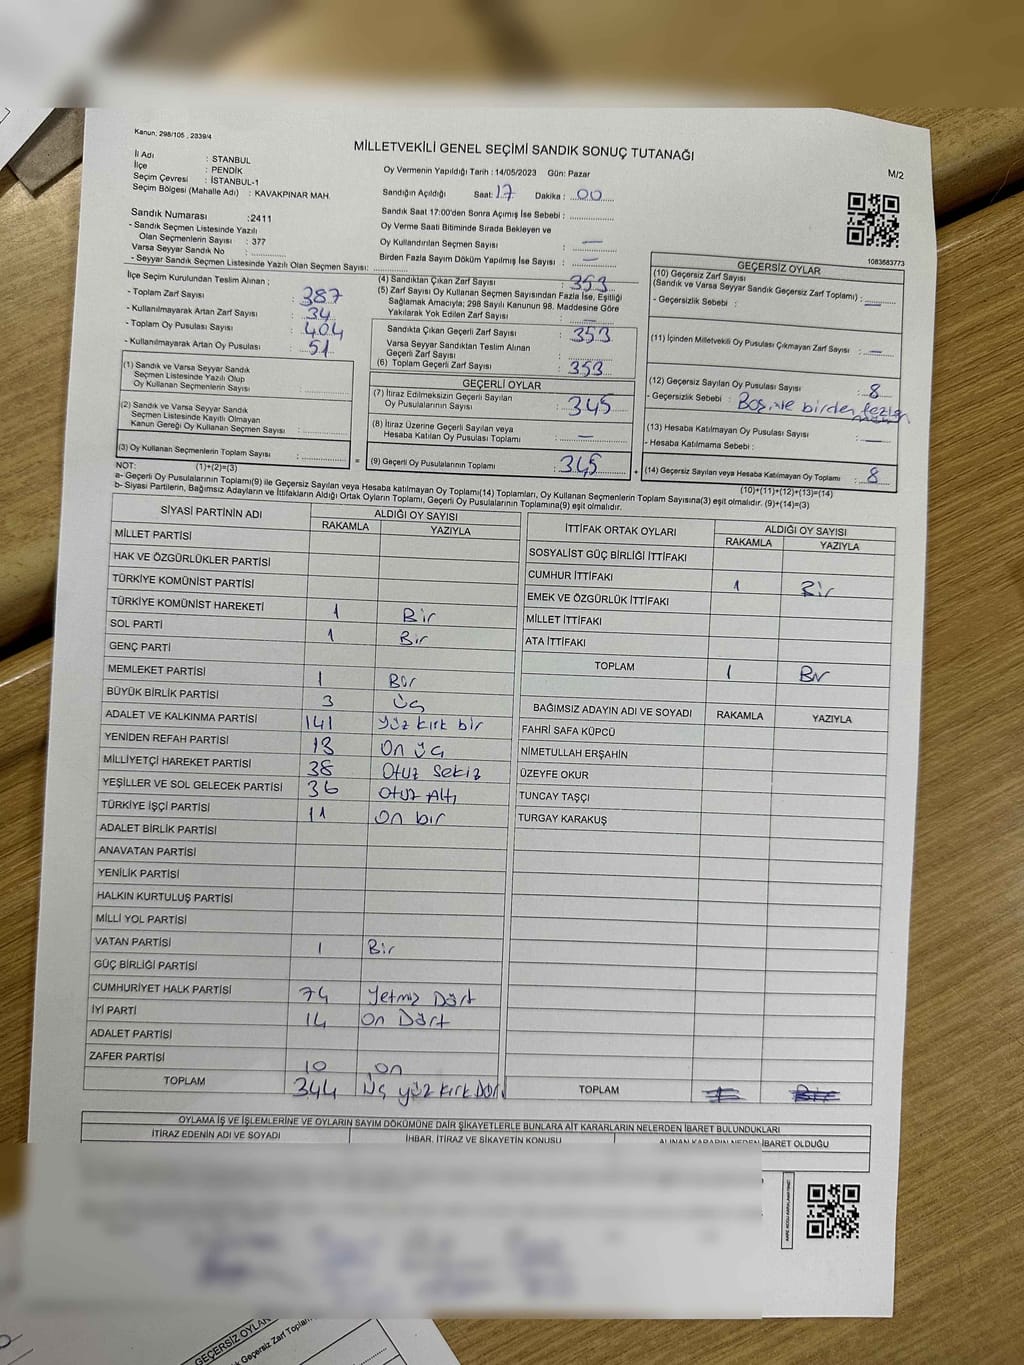 Kanun: 298/105 , 2839/4
MİLLETVEKİLİ GENEL SEÇİMİ SANDIK SONUÇ TUTANAĞI
M/2
İl Adı : STANBUL
İlçe : PENDİK
Seçim Çevresi : İSTANBUL-1
Seçim Bölgesi (Mahalle Adı) : KAVAKPINAR MAH.
Oy Vermenin Yapıldığı Tarih : 14/05/2023 Gün: Pazar
Sandığın Açıldığı Saat: 17 Dakika : 00
Sandık Saat 17:00'den Sonra Açımış İse Sebebi :
Oy Verme Saati Bitiminde Sırada Bekleyen ve
Oy Kullandırılan Seçmen Sayısı : —
Birden Fazla Sayım Döküm Yapılmış İse Sayısı : —
Sandık Numarası :2411
- Sandık Seçmen Listesinde Yazılı
Olan Seçmenlerin Sayısı : 377
Varsa Seyyar Sandık No :
- Seyyar Sandık Seçmen Listesinde Yazılı Olan Seçmen Sayısı:
İlçe Seçim Kurulundan Teslim Alınan ;
- Toplam Zarf Sayısı : 387
- Kullanılmayarak Artan Zarf Sayısı : 34
- Toplam Oy Pusulası Sayısı : 404
- Kullanılmayarak Artan Oy Pusulası : 51
(1) Sandık ve Varsa Seyyar Sandık
Seçmen Listesinde Yazılı Olup
Oy Kullanan Seçmenlerin Sayısı :
(2) Sandık ve Varsa Seyyar Sandık
Seçmen Listesinde Kayıtlı Olmayan
Kanun Gereği Oy Kullanan Seçmen Sayısı :
(3) Oy Kullanan Seçmenlerin Toplam Sayısı :
(1)+(2)=(3)
(4) Sandıktan Çıkan Zarf Sayısı : 353
(5) Zarf Sayısı Oy Kullanan Seçmen Sayısından Fazla İse, Eşitliği
Sağlamak Amacıyla; 298 Sayılı Kanunun 98. Maddesine Göre
Yakılarak Yok Edilen Zarf Sayısı : —
Sandıkta Çıkan Geçerli Zarf Sayısı : 353
Varsa Seyyar Sandıktan Teslim Alınan
Geçerli Zarf Sayısı :
(6) Toplam Geçerli Zarf Sayısı : 353
GEÇERLİ OYLAR
(7) İtiraz Edilmeksizin Geçerli Sayılan
Oy Pusulalarının Sayısı : 345
(8) İtiraz Üzerine Geçerli Sayılan veya
Hesaba Katılan Oy Pusulası Toplamı : —
(9) Geçerli Oy Pusulalarının Toplamı : 345
1083683773
GEÇERSİZ OYLAR
(10) Geçersiz Zarf Sayısı
(Sandık ve Varsa Seyyar Sandık Geçersiz Zarf Toplamı) : —
- Geçersizlik Sebebi :
(11) İçinden Milletvekili Oy Pusulası Çıkmayan Zarf Sayısı : —
(12) Geçersiz Sayılan Oy Pusulası Sayısı : 8
- Geçersizlik Sebebi : Boş ve birden fazla
(13) Hesaba Katılmayan Oy Pusulası Sayısı : —
- Hesaba Katılmama Sebebi :
(14) Geçersiz Sayılan veya Hesaba Katılmayan Oy Toplamı : 8
(10)+(11)+(12)+(13)=(14)
NOT:
a- Geçerli Oy Pusulalarının Toplamı(9) ile Geçersiz Sayılan veya Hesaba katılmayan Oy Toplamı(14) Toplamları, Oy Kullanan Seçmenlerin Toplam Sayısına(3) eşit olmalıdır. (9)+(14)=(3)
b- Siyasi Partilerin, Bağımsız Adayların ve İttifakların Aldığı Ortak Oyların Toplamı, Geçerli Oy Pusulalarının Toplamına(9) eşit olmalıdır.
SİYASİ PARTİNİN ADI ALDIĞI OY SAYISI
RAKAMLA YAZIYLA
MİLLET PARTİSİ
HAK VE ÖZGÜRLÜKLER PARTİSİ
TÜRKİYE KOMÜNİST PARTİSİ
TÜRKİYE KOMÜNİST HAREKETİ 1 Bir
SOL PARTİ 1 Bir
GENÇ PARTİ
MEMLEKET PARTİSİ 1 Bir
BÜYÜK BİRLİK PARTİSİ 3 Üç
ADALET VE KALKINMA PARTİSİ 141 Yüz kırk bir
YENİDEN REFAH PARTİSİ 13 On üç
MİLLİYETÇİ HAREKET PARTİSİ 38 Otuz Sekiz
YEŞİLLER VE SOL GELECEK PARTİSİ 36 Otuz Altı
TÜRKİYE İŞÇİ PARTİSİ 11 On bir
ADALET BİRLİK PARTİSİ
ANAVATAN PARTİSİ
YENİLİK PARTİSİ
HALKIN KURTULUŞ PARTİSİ
MİLLİ YOL PARTİSİ
VATAN PARTİSİ 1 Bir
GÜÇ BİRLİĞİ PARTİSİ
CUMHURİYET HALK PARTİSİ 74 Yetmiş Dört
İYİ PARTİ 14 On Dört
ADALET PARTİSİ
ZAFER PARTİSİ 10 On
TOPLAM 344 Üç yüz kırk Dört
İTTİFAK ORTAK OYLARI ALDIĞI OY SAYISI
RAKAMLA YAZIYLA
SOSYALİST GÜÇ BİRLİĞİ İTTİFAKI
CUMHUR İTTİFAKI 1 Bir
EMEK VE ÖZGÜRLÜK İTTİFAKI
MİLLET İTTİFAKI
ATA İTTİFAKI
TOPLAM 1 Bir
BAĞIMSIZ ADAYIN ADI VE SOYADI RAKAMLA YAZIYLA
FAHRİ SAFA KÜPCÜ
NİMETULLAH ERŞAHİN
ÜZEYFE OKUR
TUNCAY TAŞÇI
TURGAY KARAKUŞ
TOPLAM
OYLAMA İŞ VE İŞLEMLERİNE VE OYLARIN SAYIM DÖKÜMÜNE DAİR ŞİKAYETLERLE BUNLARA AİT KARARLARIN NELERDEN İBARET BULUNDUKLARI
İTİRAZ EDENİN ADI VE SOYADI İHBAR, İTİRAZ VE ŞİKAYETİN KONUSU ALINAN KARARIN NEDEN İBARET OLDUĞU
GEÇERSİZ OYLAR